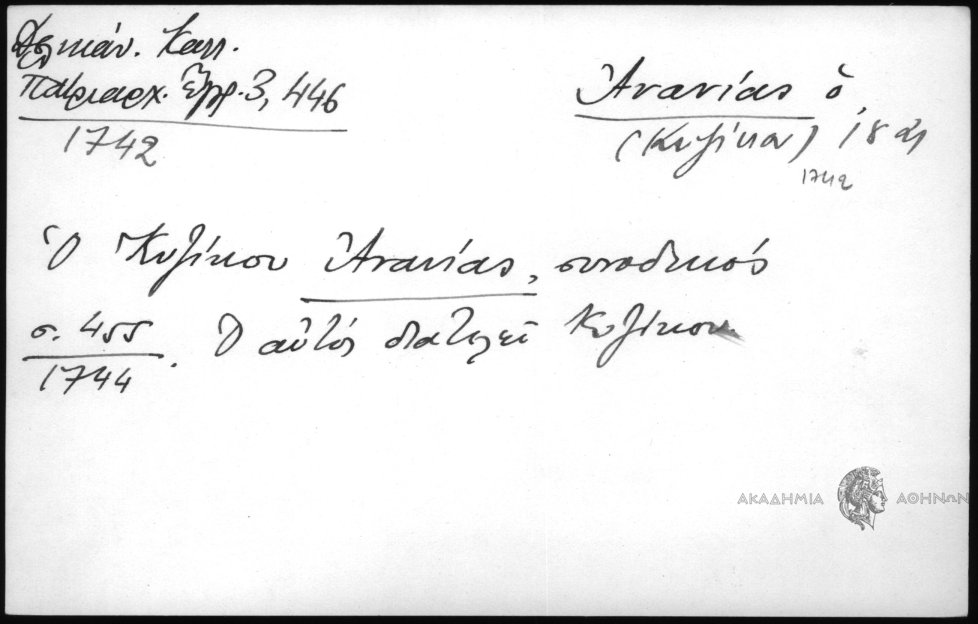 Δελικάν. Καλλ.
Πατριαρχ. Ἔγγρ. 3, 446
1742
Ἀνανίας ὁ,
(Κυζίκου) 18
1742
Ὁ Κυζίκου Ἀνανίας, συνοδικός
σ. 455
1744
. Ὁ αὐτός διατελεῖ Κυζίκου
ΑΚΑΔΗΜΙΑ ΑΘΗΝΩΝ